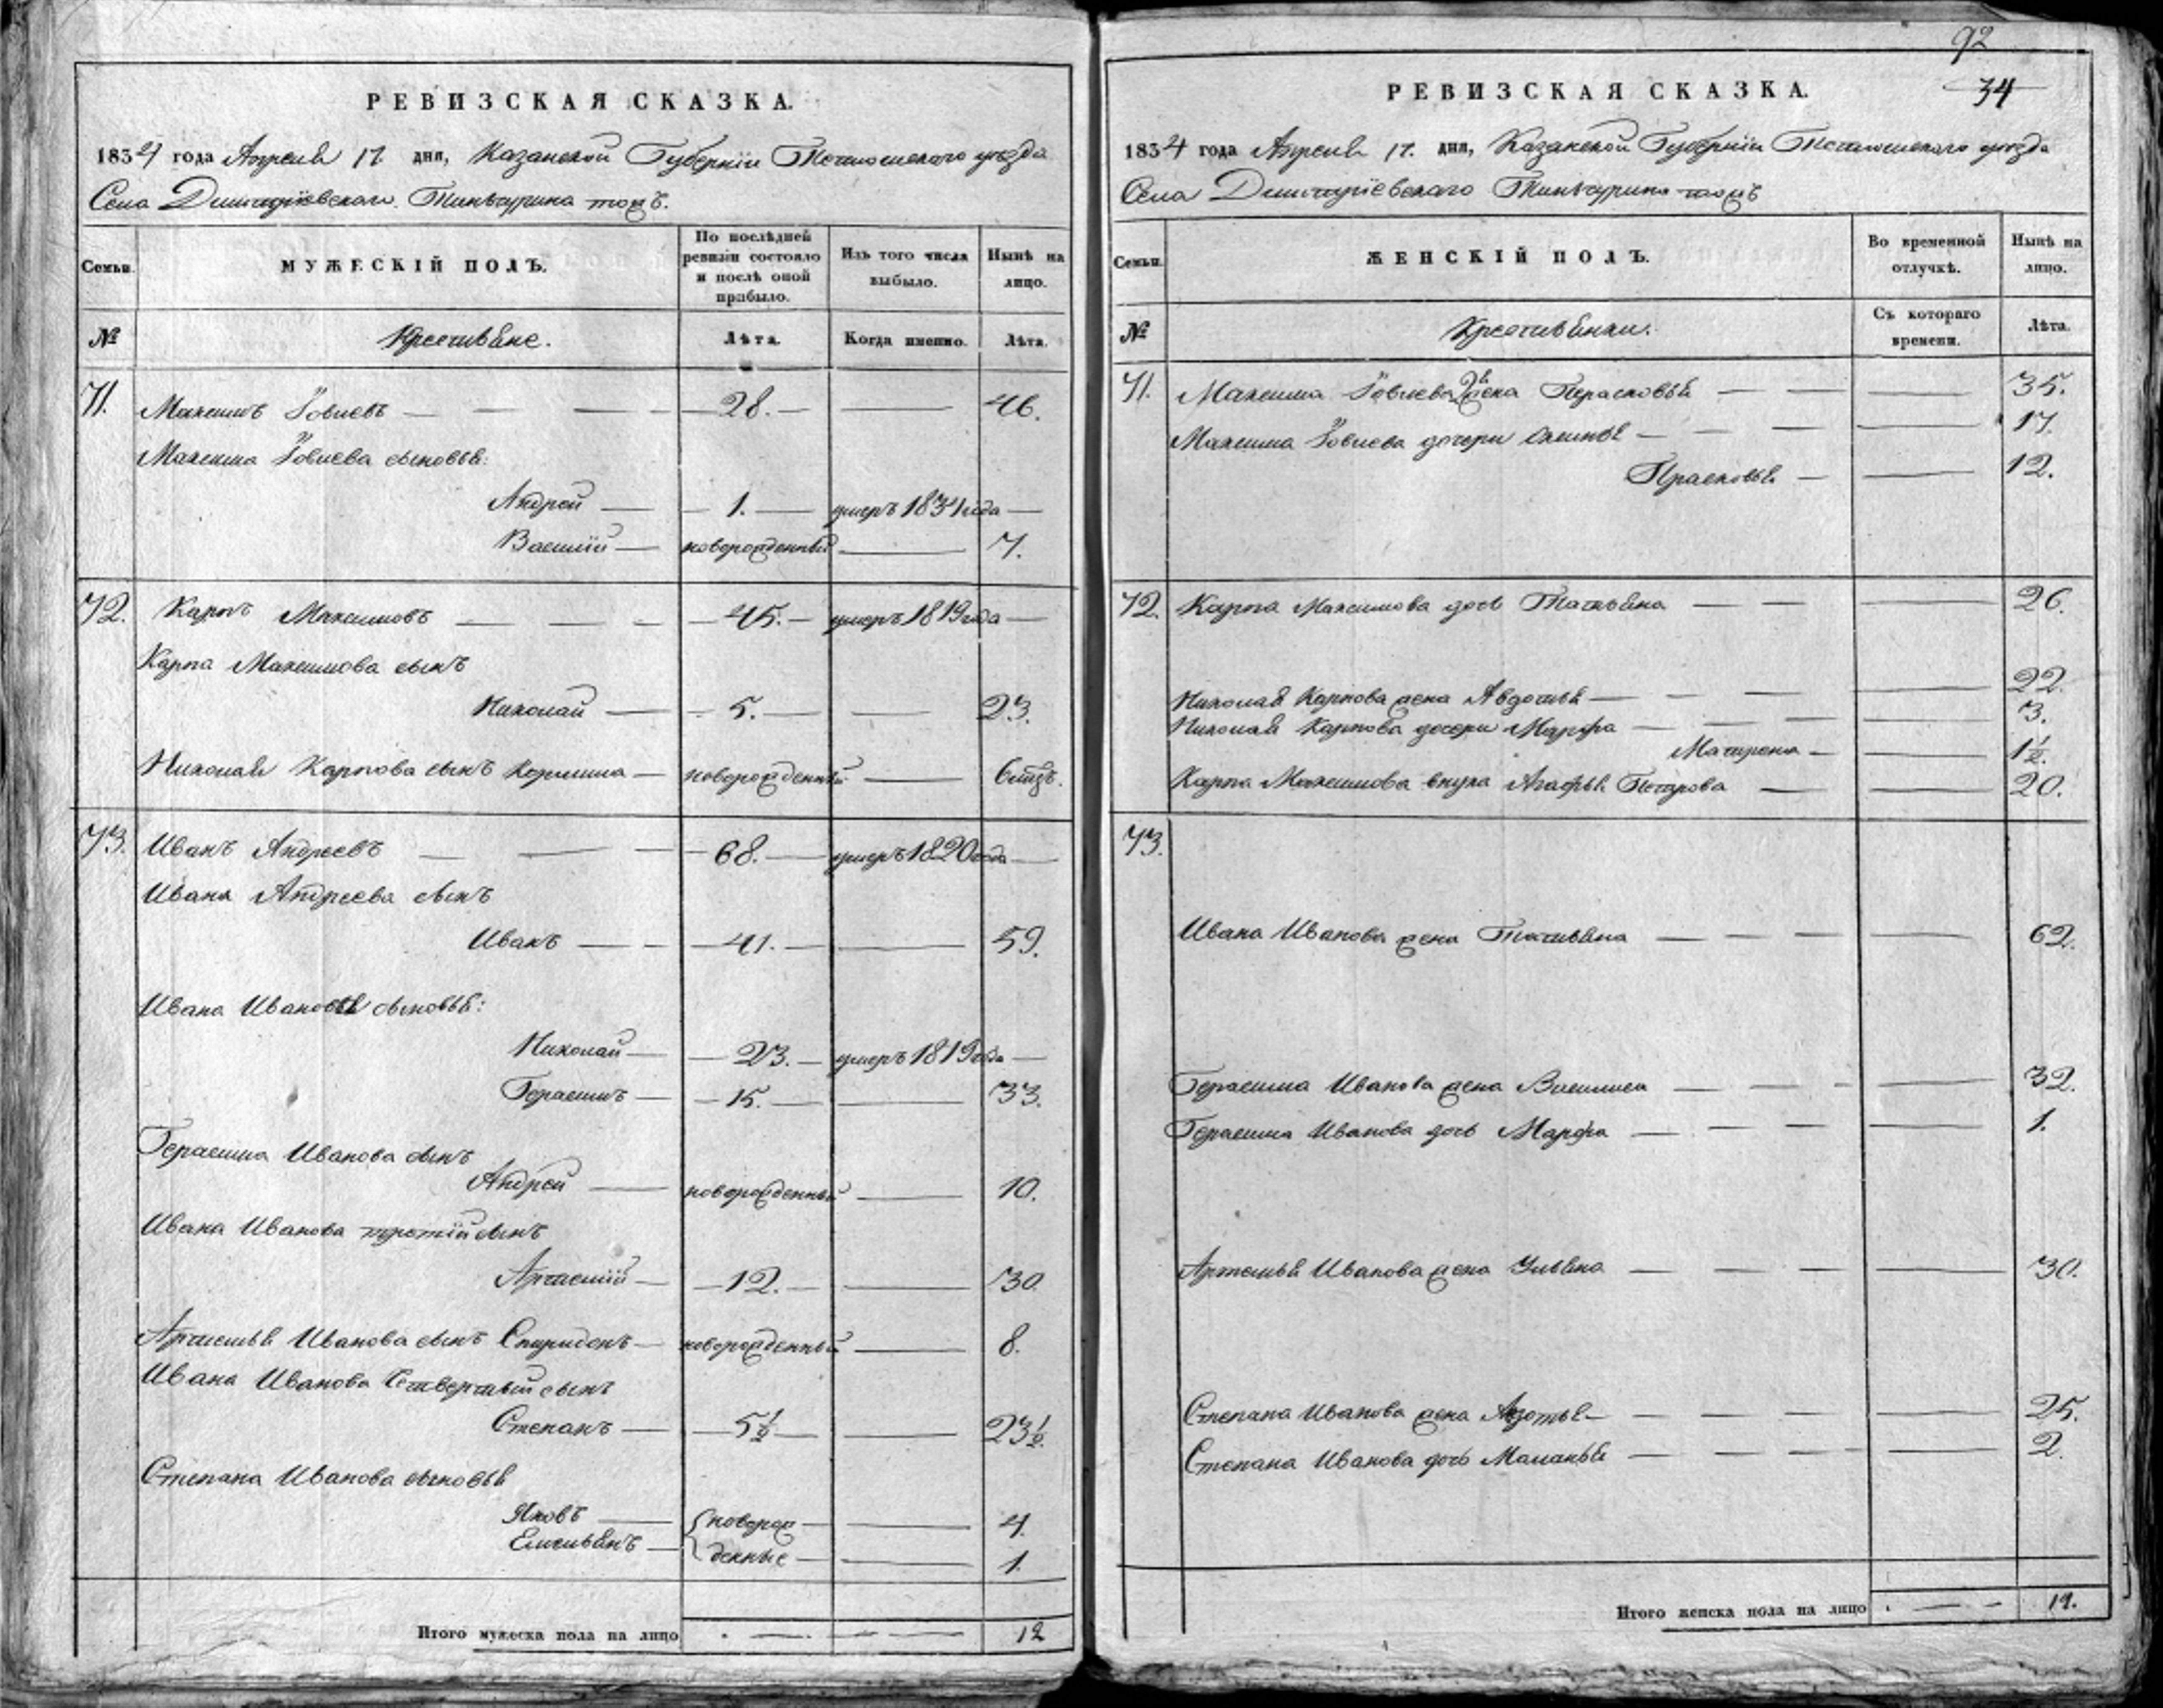 РЕВИЗСКАЯ СКАЗКА.
1834 года Апреля 17 дня, Казанской Губернiи Тетюшскаго уезда
Села Димитрiевскаго Тинчурина тожъ.
Семьи.
МУЖЕСКIЙ ПОЛЪ.
По послѣдней ревизiи состояло и послѣ оной прибыло.
Изъ того числа выбыло.
Нынѣ на лицо.
№
Крестьяне.
Лѣта.
Когда именно.
Лѣта.
71. Максимъ Iовлевъ — 28. — 46.
Максима Iовлева сыновья:
Андрей — 1. — умеръ 1831 года —
Василiй — новорожденный — 7.
72. Карпъ Максимовъ — 45. — умеръ 1819 года —
Карпа Максимова сынъ
Николай — 5. — 23.
Николая Карпова сынъ — новорожденный —
73. Иванъ Андреевъ — 68. — умеръ 1820 года —
Ивана Андреева сынъ
Иванъ — 41. — 59.
Ивана Иванова сыновья:
Николай — 23. — умеръ 1819 года —
Герасимъ — 15. — 33.
Герасима Иванова сынъ
Андрей — новорожденный — 10.
Ивана Иванова третiй сынъ
Артемiй — 12. — 30
Артемья Иванова сынъ Спиридонъ — новорожденный — 8.
Ивана Иванова Четвертый сынъ
Степанъ — 5½ — 23½.
Степана Иванова сыновья
Яковъ — новорож — 4.
Емельянъ — денные — 1.
Итого мужеска пола на лицо . — . — — 12
92
34
РЕВИЗСКАЯ СКАЗКА.
1834 года Апреля 17. дня, Казанской Губернiи Тетюшскаго уезда
Села Димитрiевскаго Тинчурина тожъ
Семьи.
ЖЕНСКIЙ ПОЛЪ.
Во временной отлучкѣ.
Нынѣ на лицо.
№
Крестьянки.
Съ котораго времени.
Лѣта.
71. Максима Iовлева 2я жена Парасковья — 35.
Максима Iовлева дочери — 17.
Прасковья — 12.
72. Карпа Максимова дочь Татьяна — 26.
Николая Карпова жена Авдотья — 22.
Николая Карпова дочери Марфа — 3.
Матрена — 1½.
Карпа Максимова внука Агафья Петрова — 20.
73.
Ивана Иванова жена Татьяна — 62.
Герасима Иванова жена Василиса — 32.
Герасима Иванова дочь Марфа — 1.
Артемья Иванова жена Ульяна — 30.
Степана Иванова жена — 25.
Степана Иванова дочь Маланья — 2.
Итого женска пола на лицо . — . — 14.